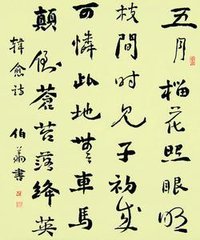 五月榴花照眼明
枝間時見子初成
可憐此地無車馬
顛倒蒼苔落絳英
韓愈詩 伯藩書